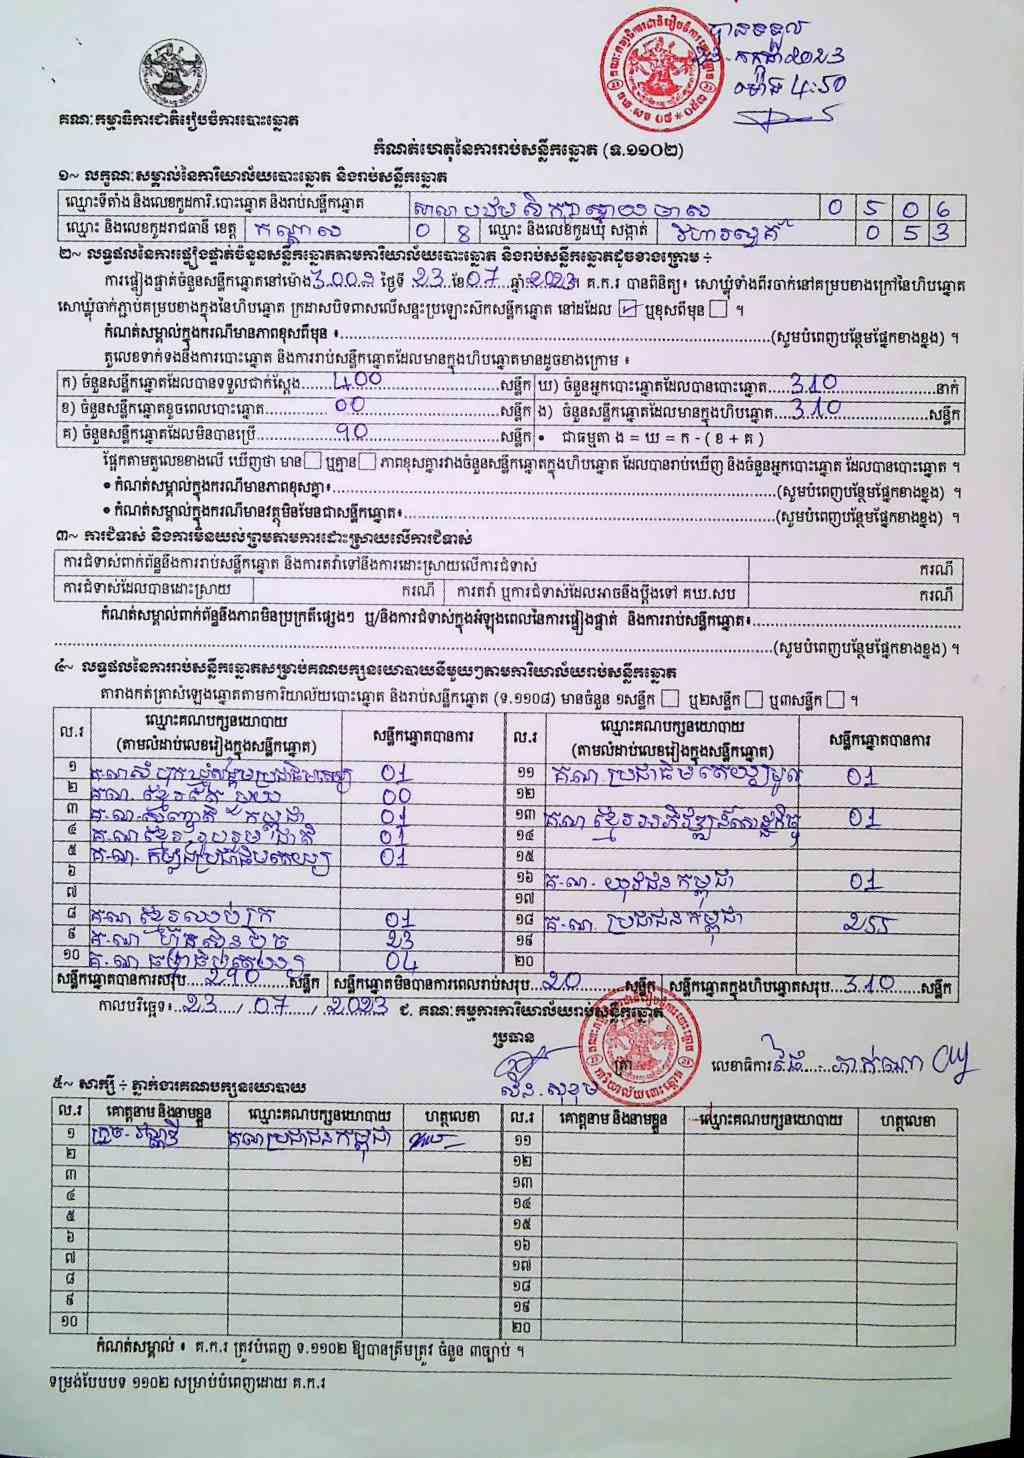 បានទទួល
កក្កដា ២០២៣
ម៉ោង 4:50
គណៈកម្មាធិការជាតិរៀបចំការបោះឆ្នោត
កំណត់ហេតុនៃការរាប់សន្លឹកឆ្នោត (ទ.១១០២)
១~ លក្ខណៈសម្គាល់នៃការិយាល័យបោះឆ្នោត និងរាប់សន្លឹកឆ្នោត
ឈ្មោះទីតាំង និងលេខកូដការិ.បោះឆ្នោត និងរាប់សន្លឹកឆ្នោត សាលាបឋមសិក្សាស្វាយមាស 0 5 0 6
ឈ្មោះ និងលេខកូដរាជធានី ខេត្ត កណ្តាល 0 8 ឈ្មោះ និងលេខកូដឃុំ សង្កាត់ វិហារសួគ៌ 0 5 3
២~ លទ្ធផលនៃការផ្ទៀងផ្ទាត់ចំនួនសន្លឹកឆ្នោតតាមការិយាល័យបោះឆ្នោត និងរាប់សន្លឹកឆ្នោតដូចខាងក្រោម ÷
ការផ្ទៀងផ្ទាត់ចំនួនសន្លឹកឆ្នោតនៅម៉ោង 3.00 ថ្ងៃទី 23 ខែ 07 ឆ្នាំ 2023 ។ គ.ក.រ បានពិនិត្យ៖ សោឃ្លុំទាំងពីរចាក់នៅគម្របខាងក្រៅនៃហិបឆ្នោត
សោឃ្លុំចាក់ភ្ជាប់គម្របខាងក្នុងនៃហិបឆ្នោត ក្រដាសបិទពាសលើសន្ទះប្រឡោះស៊កសន្លឹកឆ្នោត នៅដដែល ☑ ឬខុសពីមុន ☐ ។
កំណត់សម្គាល់ក្នុងករណីមានភាពខុសពីមុន ៖ (សូមបំពេញបន្ថែមផ្នែកខាងខ្នង) ។
តួលេខទាក់ទងនឹងការបោះឆ្នោត និងការរាប់សន្លឹកឆ្នោតដែលមានក្នុងហិបឆ្នោតមានដូចខាងក្រោម ៖
ក) ចំនួនសន្លឹកឆ្នោតដែលបានទទួលជាក់ស្តែង 400 សន្លឹក ឃ) ចំនួនអ្នកបោះឆ្នោតដែលបានបោះឆ្នោត 310 នាក់
ខ) ចំនួនសន្លឹកឆ្នោតខូចពេលបោះឆ្នោត 00 សន្លឹក ង) ចំនួនសន្លឹកឆ្នោតដែលមានក្នុងហិបឆ្នោត 310 សន្លឹក
គ) ចំនួនសន្លឹកឆ្នោតដែលមិនបានប្រើ 90 សន្លឹក • ជាធម្មតា ង = ឃ = ក - ( ខ + គ )
ផ្អែកតាមតួលេខខាងលើ ឃើញថា មាន ☐ ឬគ្មាន ☐ ភាពខុសគ្នារវាងចំនួនសន្លឹកឆ្នោតក្នុងហិបឆ្នោត ដែលបានរាប់ឃើញ និងចំនួនអ្នកបោះឆ្នោត ដែលបានបោះឆ្នោត ។
• កំណត់សម្គាល់ក្នុងករណីមានភាពខុសគ្នា៖ (សូមបំពេញបន្ថែមផ្នែកខាងខ្នង) ។
• កំណត់សម្គាល់ក្នុងករណីមានវត្ថុមិនមែនជាសន្លឹកឆ្នោត៖ (សូមបំពេញបន្ថែមផ្នែកខាងខ្នង) ។
៣~ ការជំទាស់ និងការមិនយល់ព្រមតាមការដោះស្រាយលើការជំទាស់
ការជំទាស់ពាក់ព័ន្ធនឹងការរាប់សន្លឹកឆ្នោត និងការតវ៉ាទៅនឹងការដោះស្រាយលើការជំទាស់ ករណី
ការជំទាស់ដែលបានដោះស្រាយ ករណី ការតវ៉ា ឬការជំទាស់ដែលអាចនឹងប្តឹងទៅ គឃ.សប ករណី
កំណត់សម្គាល់ពាក់ព័ន្ធនឹងភាពមិនប្រក្រតីផ្សេងៗ ឬ/និងការជំទាស់ក្នុងអំឡុងពេលនៃការផ្ទៀងផ្ទាត់ និងការរាប់សន្លឹកឆ្នោត៖
(សូមបំពេញបន្ថែមផ្នែកខាងខ្នង) ។
៤~ លទ្ធផលនៃការរាប់សន្លឹកឆ្នោតសម្រាប់គណបក្សនយោបាយនីមួយៗតាមការិយាល័យរាប់សន្លឹកឆ្នោត
តារាងកត់ត្រាសំឡេងឆ្នោតតាមការិយាល័យបោះឆ្នោត និងរាប់សន្លឹកឆ្នោត (ទ.១១០៨) មានចំនួន ១សន្លឹក ☐ ឬ២សន្លឹក ☐ ឬ៣សន្លឹក ☐ ។
ល.រ ឈ្មោះគណបក្សនយោបាយ (តាមលំដាប់លេខរៀងក្នុងសន្លឹកឆ្នោត) សន្លឹកឆ្នោតបានការ ល.រ ឈ្មោះគណបក្សនយោបាយ (តាមលំដាប់លេខរៀងក្នុងសន្លឹកឆ្នោត) សន្លឹកឆ្នោតបានការ
១ គ.ណ សំបុកឃ្មុំសង្គមប្រជាធិបតេយ្យ 01 ១១ គ.ណ. ប្រជាធិបតេយ្យមូល 01
២ គ.ណ. ខ្មែរ 00 ១២
៣ គ.ណ. សញ្ជាតិកម្ពុជា 01 ១៣ គ.ណ ខ្មែរអភិវឌ្ឍន៍សេដ្ឋកិច្ច 01
៤ គ.ណ ខ្មែរ រួបរួមជាតិ 01 ១៤
៥ គ.ណ. កម្លាំងប្រជាធិបតេយ្យ 01 ១៥
៦ ១៦ គ.ណ. យុវជនកម្ពុជា 01
៧ ១៧
៨ គ.ណ ខ្មែរឈប់ក្រ 01 ១៨ គ.ណ. ប្រជាជនកម្ពុជា 255
៩ គ.ណ ហ៊្វុនស៊ិនប៉ិច 23 ១៩
១០ គ.ណ ធម្មាធិបតេយ្យ 04 ២០
សន្លឹកឆ្នោតបានការសរុប 290 សន្លឹក សន្លឹកឆ្នោតមិនបានការពេលរាប់សរុប 20 សន្លឹក សន្លឹកឆ្នោតក្នុងហិបឆ្នោតសរុប 310 សន្លឹក
កាលបរិច្ឆេទ៖ 23 / 07 / 2023 ជ. គណៈកម្មការការិយាល័យរាប់សន្លឹកឆ្នោត
ប្រធាន
ត្រា លេខាធិការ
ស៊ឹង. សុខុម
៥~ សាក្សី ÷ ភ្នាក់ងារគណបក្សនយោបាយ
ល.រ គោត្តនាម និងនាមខ្លួន ឈ្មោះគណបក្សនយោបាយ ហត្ថលេខា ល.រ គោត្តនាម និងនាមខ្លួន ឈ្មោះគណបក្សនយោបាយ ហត្ថលេខា
១ គណប្រជាជនកម្ពុជា ១១
២ ១២
៣ ១៣
៤ ១៤
៥ ១៥
៦ ១៦
៧ ១៧
៨ ១៨
៩ ១៩
១០ ២០
កំណត់សម្គាល់ ៖ គ.ក.រ ត្រូវបំពេញ ទ.១១០២ ឱ្យបានត្រឹមត្រូវ ចំនួន ៣ច្បាប់ ។
ទម្រង់បែបបទ ១១០២ សម្រាប់បំពេញដោយ គ.ក.រ